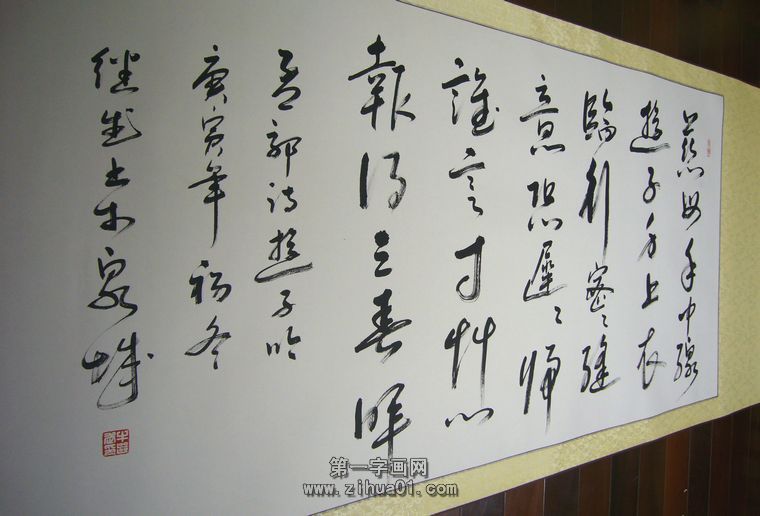 慈母手中線
遊子身上衣
臨行密々縫
意恐遲々歸
誰言寸艸心
報得三春暉
孟郊诗遊子吟
庚寅年初冬
继书於泉城
第一字画网
www.zihua01.com